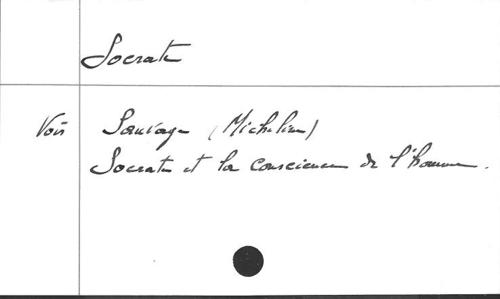 Socrate
Voir Sauvage (Micheline)
Socrate et la conscience de l'homme.